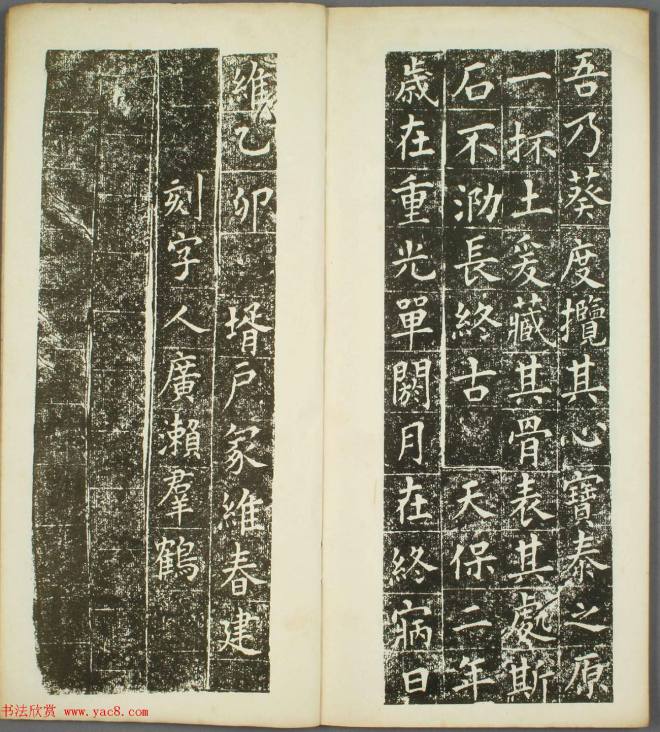 吾乃葵度攬其心寶泰之原
一抔土爰藏其骨表其處斯
石不泐長終古 天保二年
歳在重光單閼月在終窉日
維乙卯 壻戶冢維春建
刻字人廣瀨羣鶴
书法欣赏 www.yac8.com